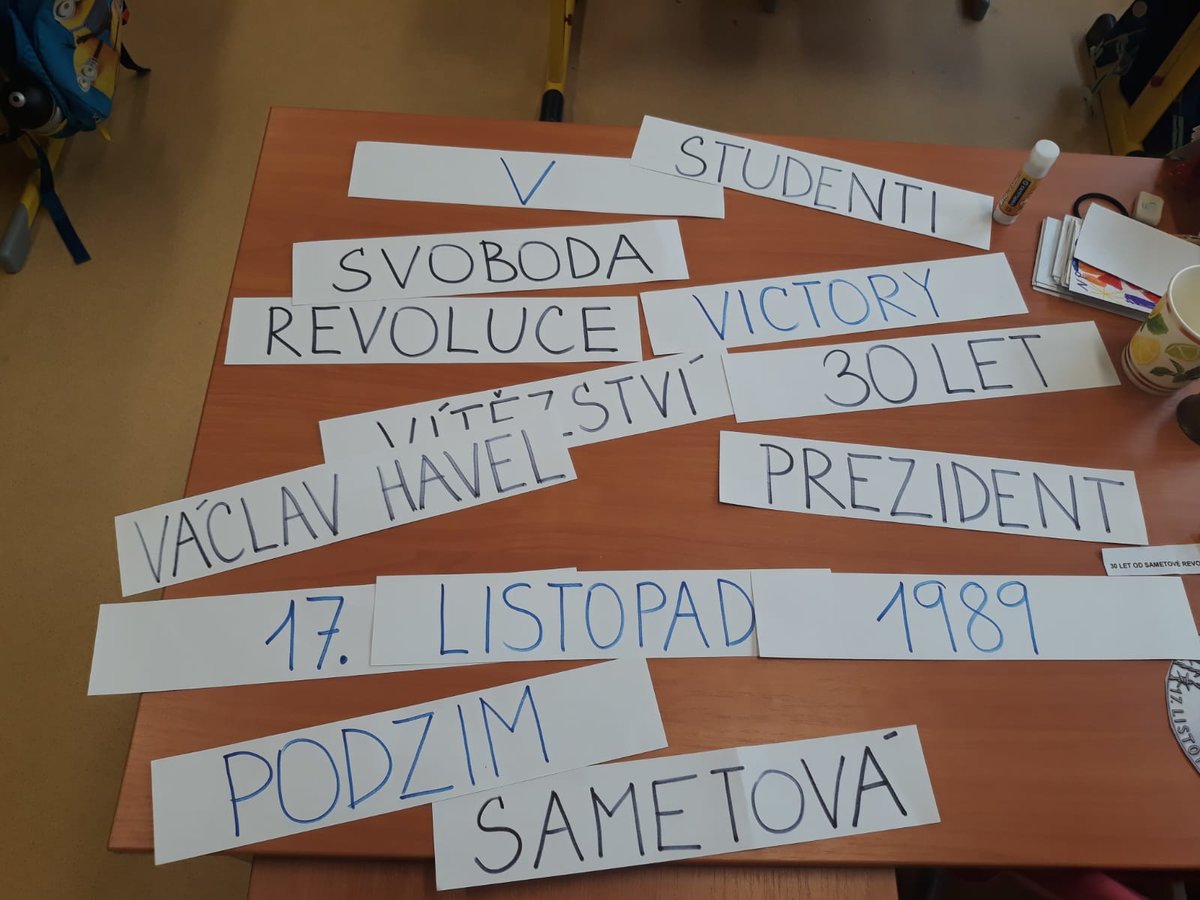 V
STUDENTI
SVOBODA
REVOLUCE
VICTORY
VÍTĚZSTVÍ
30 LET
VÁCLAV HAVEL
PREZIDENT
30 LET OD SAMETOVÉ REVO
17. LISTOPAD 1989
17. LISTO
PODZIM
SAMETOVÁ